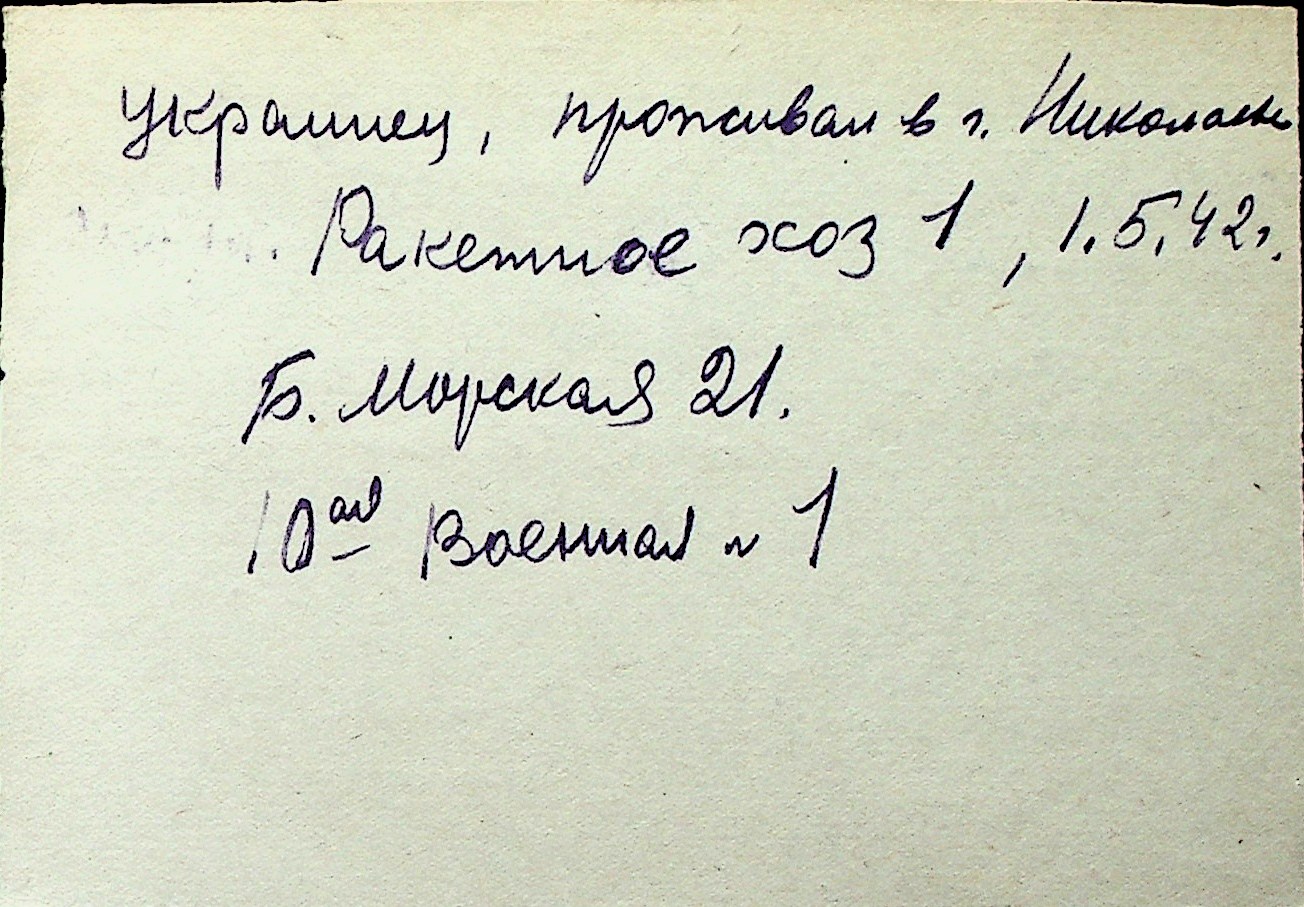 украинец, проживал в г. Николаеве
Ракетное хоз 1, 1.5.42г.
Б. Морская 21.
10ая Военная № 1